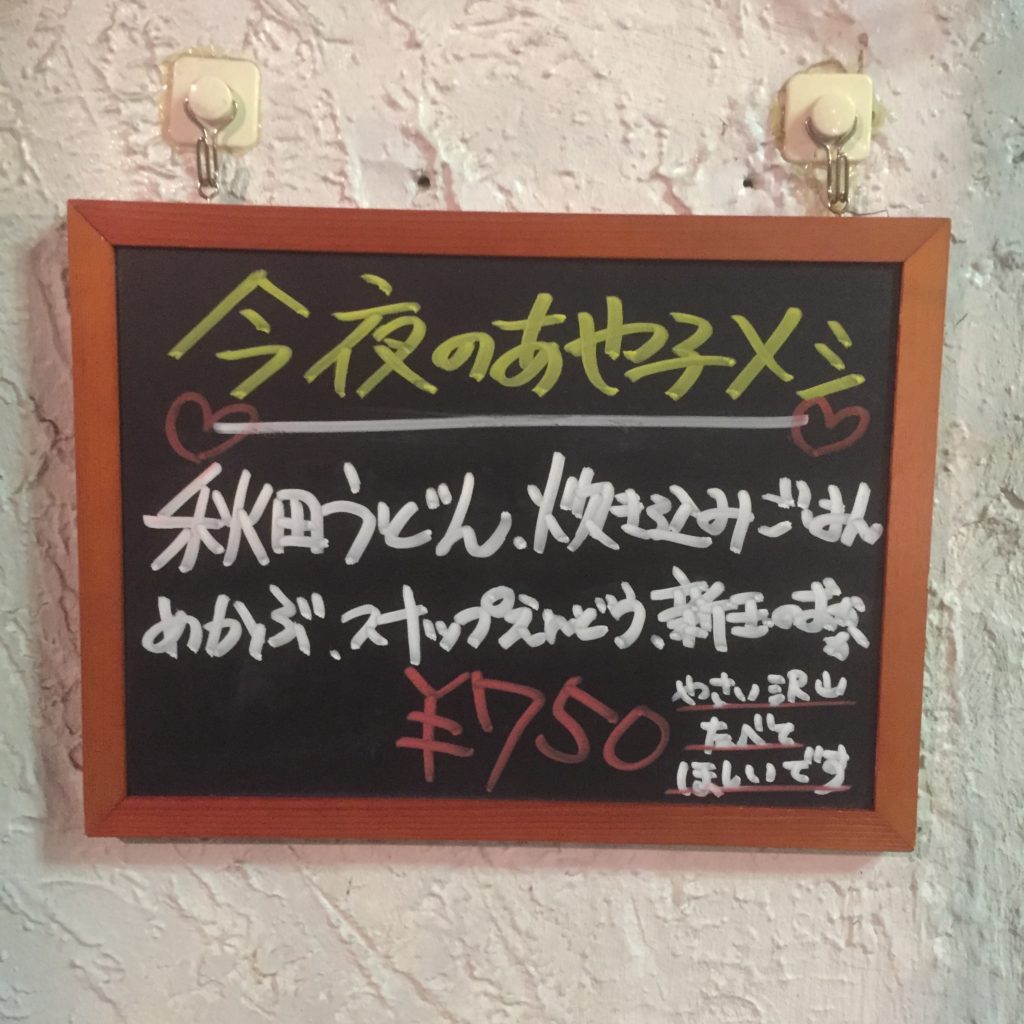 今夜のあや子メシ
秋田うどん、炊き込みごはん
めかぶ、スナップえんどう、新玉の
¥750
やさい沢山
たべて
ほしいです